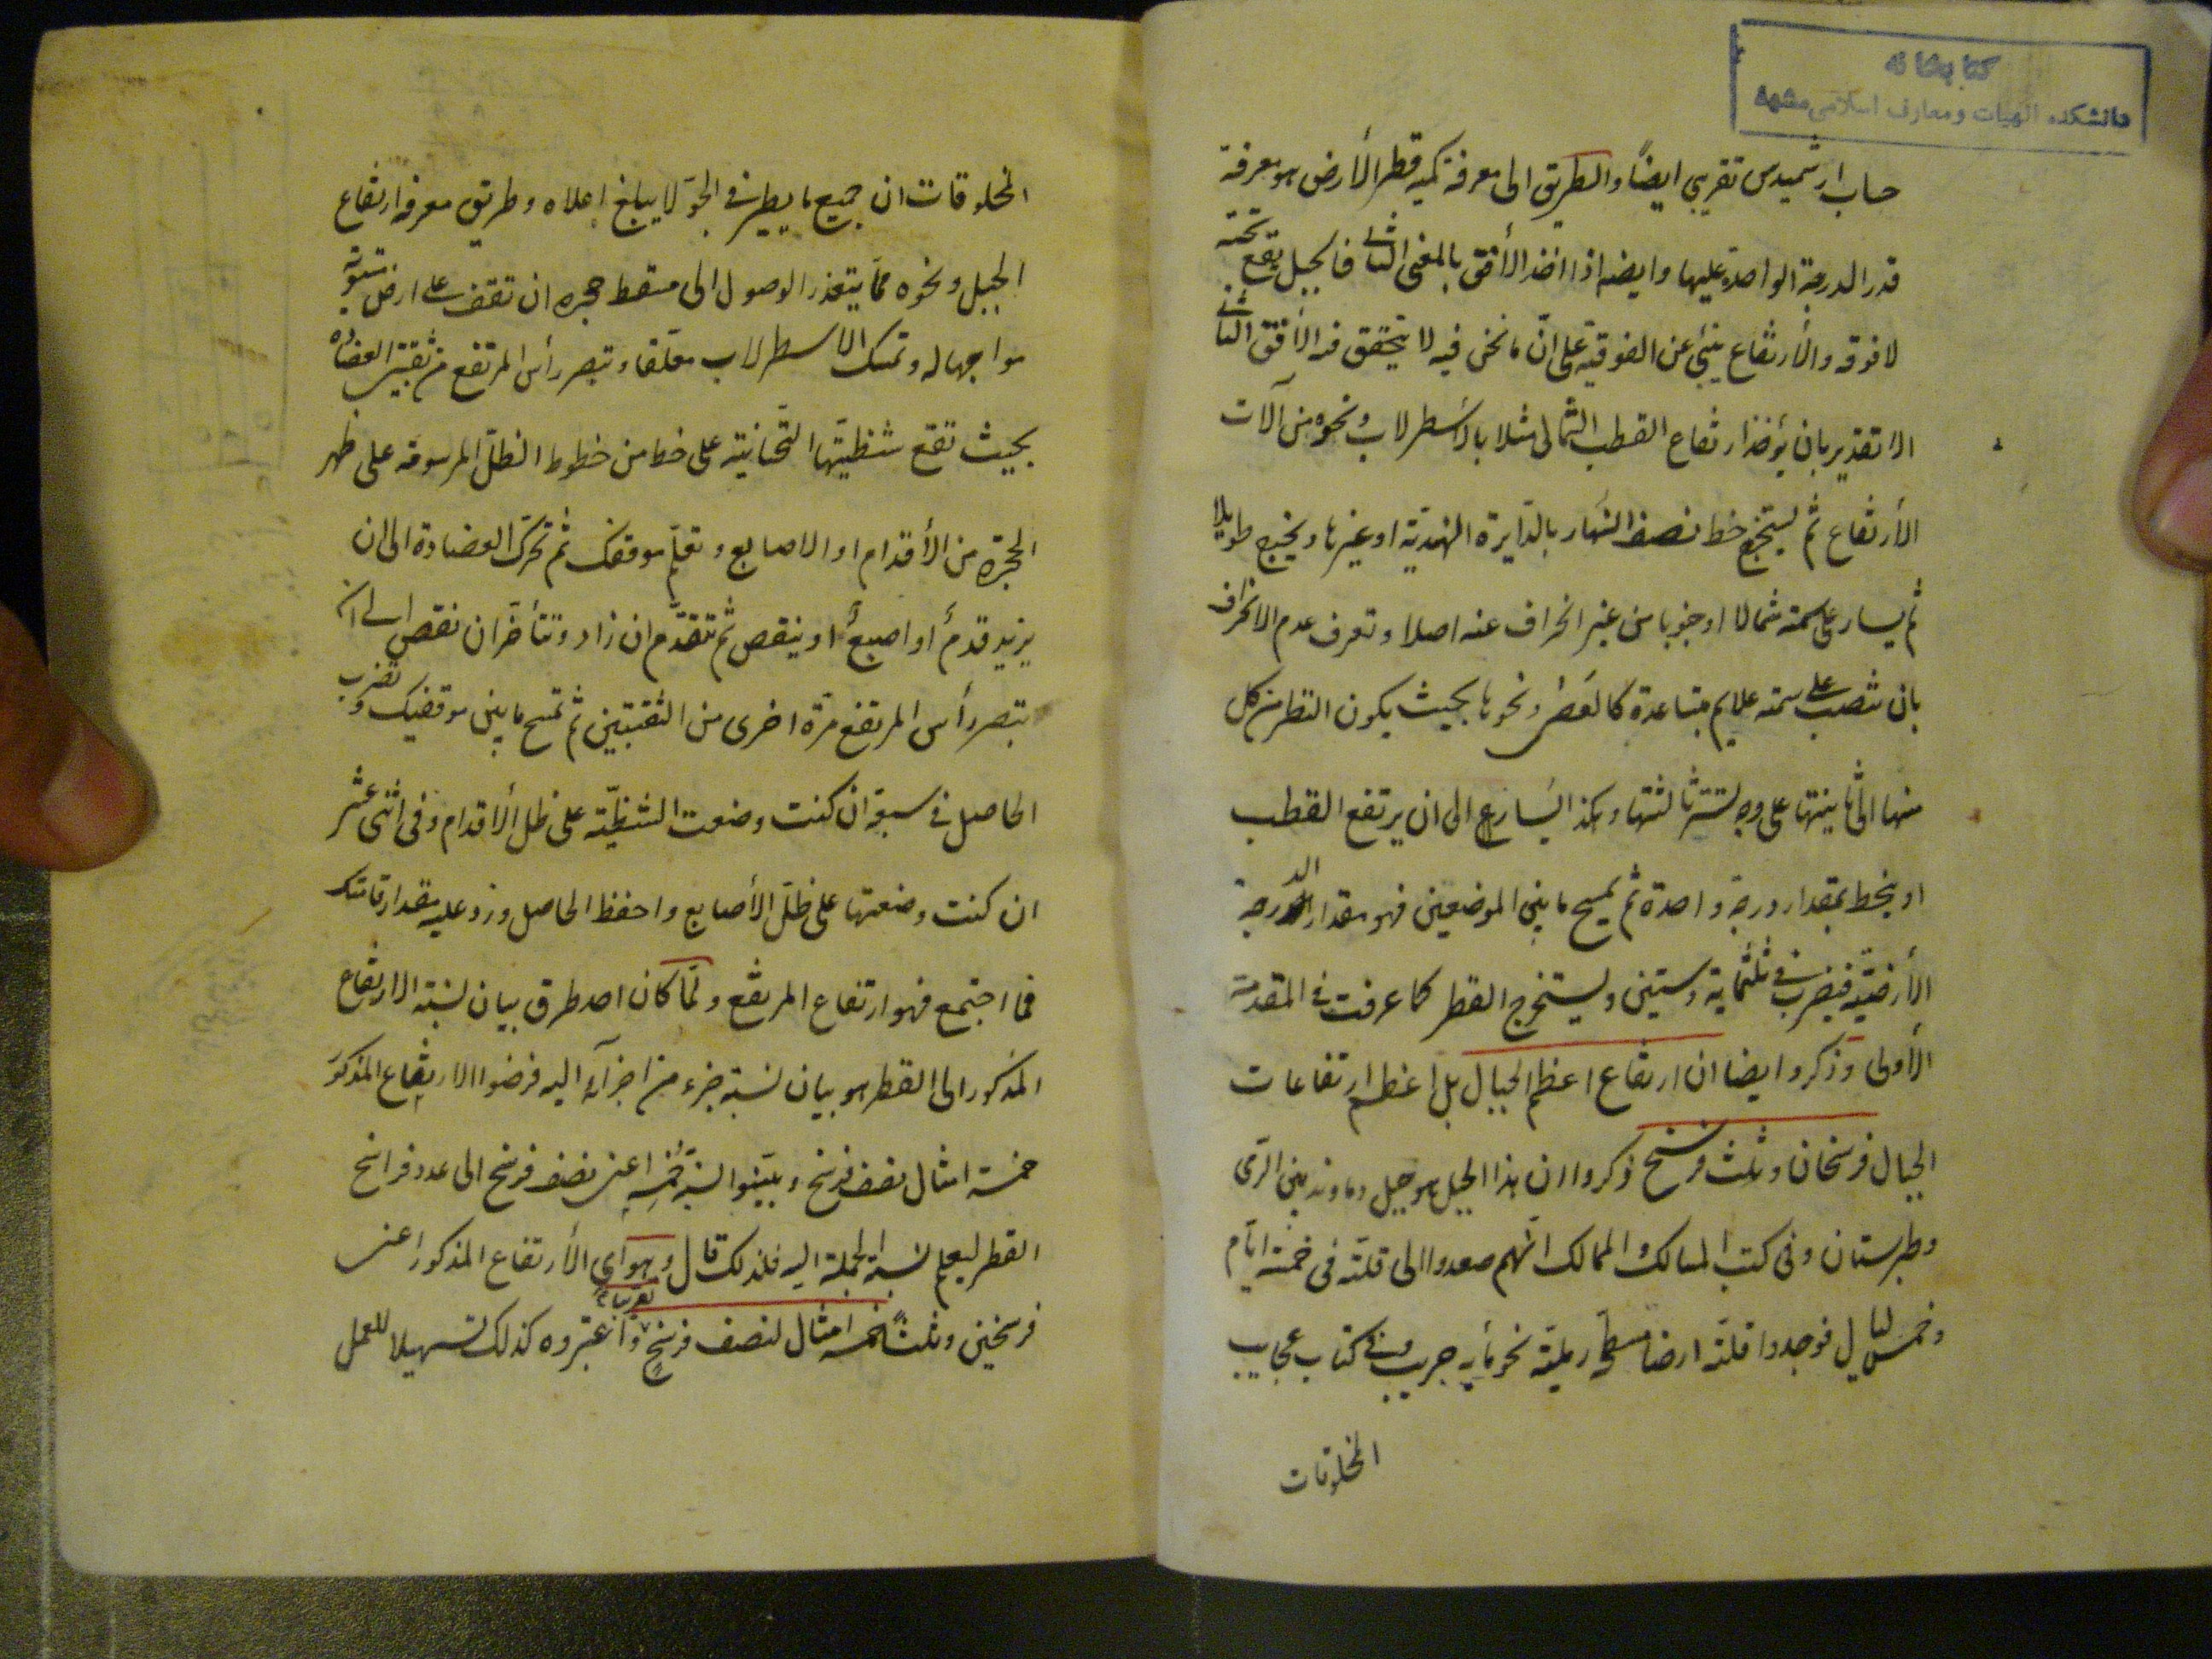 كتابخانه
دانشكده الهيات ومعارف اسلامى مشهد
حساب ارشميدس تقريبى ايضاً والطريق الى معرفة كميه قطر الأرض هو معرفة
قدر الدرجة الواحدة عليها وايضه اذا اخذ الأفق بالمعنى الثانى فالجبل يقع تحته
لا فوقه والأرتفاع ينبئ عن الفوقية على انّ ما نحن فيه لا يتحقق فيه الأفق الثانى
الا تقدير بان يؤخذ ارتفاع القطب الشمالى مثلا بالأسطرلاب ونحوه من آلات
الأرتفاع ثم يستخرج خط نصف النهار بالدّايرة الهنديّة او غيرها ويخرج طويلا
ثم يسار على سمته شمالا او جنوبا من غير انحراف عنه اصلا وتعرف عدم الانحراف
بان تنصب على سمته علايم متباعدة كالعصى ونحوها بحيث يكون النظر من كل
منها الى ثانيتها على وجه تستر ثالثتها وهكذا يسار الى ان يرتفع القطب
او ينحط بمقدار درجة واحدة ثم يمسح ما بين الموضعين فهو مقدار الدرجة
الأرضيّة فيضرب فى ثلثماية وستين ويستخرج القطر كما عرفت فى المقدمة
الأولى وذكروا ايضا ان ارتفاع اعظم الجبال بل اعظم ارتفاعات
الجبال فرسخان وثلث فرسخ ذكروا ان هذا الجبل هو جبل دماوند بين الرى
وطبرستان وفى كتب المسالك والممالك انّهم صعدوا الى قلته فى خمسة ايّام
وخمس ليال فوجدوا قلته ارضا مسطحة رملية نحو مأية جريب وفى كتاب عجايب
المخلوقات
المخلوقات ان جميع ما يطير فى الجوّ لا يبلغ اعلاه وطريق معرفة ارتفاع
الجبل ونحوه ممّا يتعذر الوصول الى مسقط حجره ان تقف على ارض مستوية
مواجها له وتمسك الاسطرلاب معلّقا وتبصر رأس المرتفع من ثقبتى العضادة
بحيث تقع شظيّتها التّحتانية على خط من خطوط الظلّ المرسومة على ظهر
الحجرة من الأقدام او الاصابع وتعلّم موقفك ثم تحرّك العضادة الى ان
يزيد قدمأ او اصبعأ او ينقص ثم تتقدّم ان زاد وتتأخّر ان نقص الى ان
تبصر رأس المرتفع مرّة اخرى من الثقبتين ثم تمسح ما بين موقفيك وتضرب
الحاصل فى سبعة ان كنت وضعت الشظيّة على ظل ألاقدام وفى اثنى عشر
ان كنت وضعتها على ظلّ الأصابع واحفظ الحاصل وزد عليه مقدار قامتك
فما اجتمع فهو ارتفاع المرتفع ولمّا كان احد طرق بيان نسبة الارتفاع
المذكور الى القطر هو بيان نسبة جزء من اجزآئه اليه فرضوا الارتفاع المذكور
خمسة امثال نصف فرسخ وبيّنوا نسبة خمسه اعنى نصف فرسخ الى عدد فراسخ
القطر ليعلم نسبة الجملة اليه فلذلك قال وهو اى الأرتفاع المذكور اعنى
فرسخين وثلثاً خمسة امثال لنصف فرسخٍ تقريبا واعتبروه كذلك تسهيلا للعمل